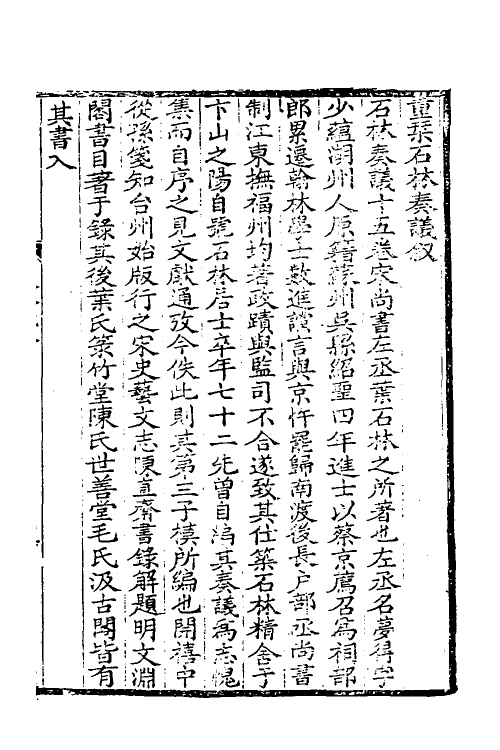 重栞石林奏議叙
石林奏議十五卷宋尚書左丞葉石林之所著也左丞名夢得字
少蘊湖州人原籍蘇州吳縣紹聖四年進士以蔡京薦召爲祠部
郎累遷翰林學士數進讜言與京忤罷歸南渡後長戶部丞尚書
制江東撫福州均著政蹟與監司不合遂致其仕築石林精舍于
卞山之陽自號石林居士卒年七十二先曾自編其奏議爲志愧
集而自序之見文獻通攷今佚此則其第三子模所編也開禧中
從孫箋知台州始版行之宋史藝文志陳直齋書錄解題明文淵
閣書目著于錄其後葉氏菉竹堂陳氏世善堂毛氏汲古閣皆有
其書入